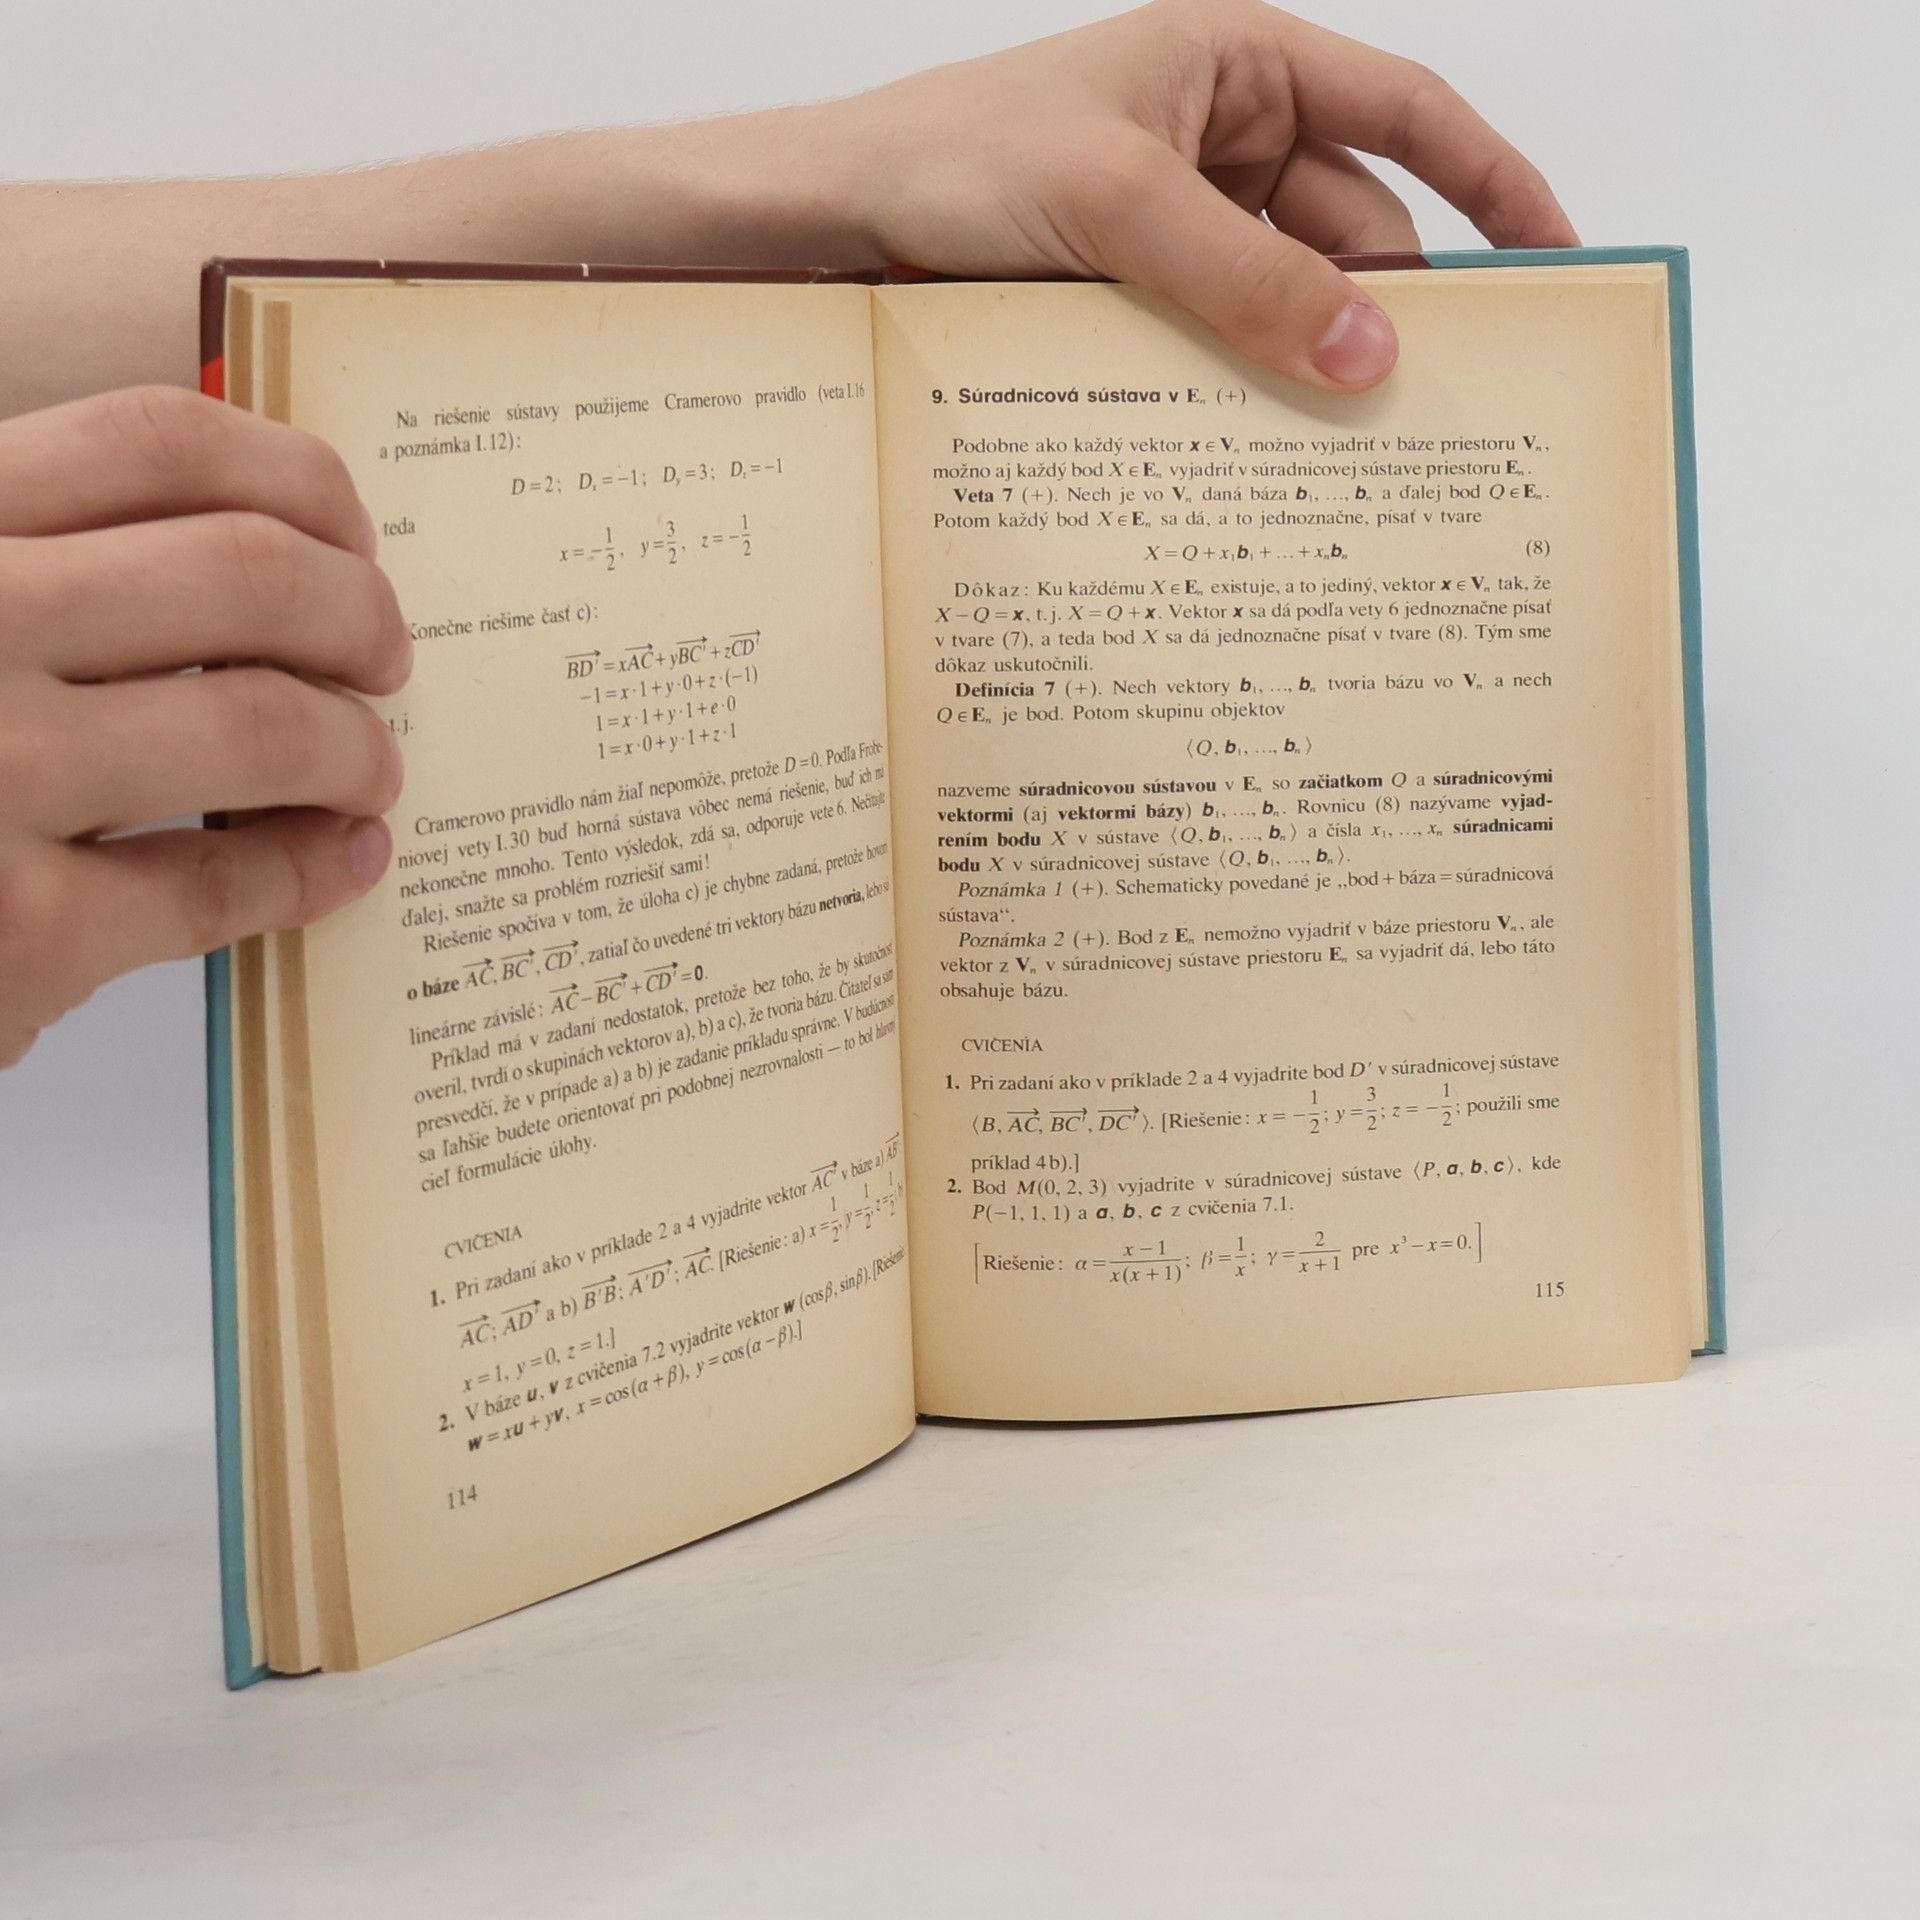 Na riešenie sústavy použijeme Cramerovo pravidlo (veta I.16
a poznámka I.12):
D=2; Dₓ=−1; Dᵧ=3; D_z=−1
teda
x=−1/2, y=3/2, z=−1/2
Konečne riešime časť c):
BD′⃗=xAC⃗+yBC′⃗+zCD′⃗
−1=x·1+y·0+z·(−1)
t.j. 1=x·1+y·1+e·0
1=x·0+y·1+z·1
Cramerovo pravidlo nám žiaľ nepomôže, pretože D=0. Podľa Frobe-
niovej vety I.30 buď horná sústava vôbec nemá riešenie, buď ich má
nekonečne mnoho. Tento výsledok, zdá sa, odporuje vete 6. Nečítajte
ďalej, snažte sa problém rozriešiť sami!
Riešenie spočíva v tom, že úloha c) je chybne zadaná, pretože hovorí
o báze AC⃗, BC′⃗, CD′⃗, zatiaľ čo uvedené tri vektory bázu netvoria, lebo sú
lineárne závislé: AC⃗−BC′⃗+CD′⃗=0.
Príklad má v zadaní nedostatok, pretože bez toho, že by skutočnosť
overil, tvrdí o skupinách vektorov a), b) a c), že tvoria bázu. Čitateľ sa sám
presvedčí, že v prípade a) a b) je zadanie príkladu správne. V budúcnosti
sa ľahšie budete orientovať pri podobnej nezrovnalosti — to bol hlavný
cieľ formulácie úlohy.
CVIČENIA
1. Pri zadaní ako v príklade 2 a 4 vyjadrite vektor AC′⃗ v báze a) AB′⃗;
AC⃗; AD′⃗ a b) B′B⃗; A′D′⃗; AC⃗. [Riešenie: a) x=1/2, y=1/2, z=1/2; b)
x=1, y=0, z=1.]
2. V báze u, v z cvičenia 7.2 vyjadrite vektor w (cosβ, sinβ). [Riešenie:
w=xu+yv, x=cos(α+β), y=cos(α−β).]
114
9. Súradnicová sústava v Eₙ (+)
Podobne ako každý vektor x∈Vₙ možno vyjadriť v báze priestoru Vₙ,
možno aj každý bod X∈Eₙ vyjadriť v súradnicovej sústave priestoru Eₙ.
Veta 7 (+). Nech je vo Vₙ daná báza b₁, ..., bₙ a ďalej bod Q∈Eₙ.
Potom každý bod X∈Eₙ sa dá, a to jednoznačne, písať v tvare
X=Q+x₁b₁+...+xₙbₙ (8)
Dôkaz: Ku každému X∈Eₙ existuje, a to jediný, vektor x∈Vₙ tak, že
X−Q=x, t.j. X=Q+x. Vektor x sa dá podľa vety 6 jednoznačne písať
v tvare (7), a teda bod X sa dá jednoznačne písať v tvare (8). Tým sme
dôkaz uskutočnili.
Definícia 7 (+). Nech vektory b₁, ..., bₙ tvoria bázu vo Vₙ a nech
Q∈Eₙ je bod. Potom skupinu objektov
⟨Q, b₁, ..., bₙ⟩
nazveme súradnicovou sústavou v Eₙ so začiatkom Q a súradnicovými
vektormi (aj vektormi bázy) b₁, ..., bₙ. Rovnicu (8) nazývame vyjad-
rením bodu X v sústave ⟨Q, b₁, ..., bₙ⟩ a čísla x₁, ..., xₙ súradnicami
bodu X v súradnicovej sústave ⟨Q, b₁, ..., bₙ⟩.
Poznámka 1 (+). Schematicky povedané je „bod+báza=súradnicová
sústava“.
Poznámka 2 (+). Bod z Eₙ nemožno vyjadriť v báze priestoru Vₙ, ale
vektor z Vₙ v súradnicovej sústave priestoru Eₙ sa vyjadriť dá, lebo táto
obsahuje bázu.
CVIČENIA
1. Pri zadaní ako v príklade 2 a 4 vyjadrite bod D′ v súradnicovej sústave
⟨B, AC⃗, BC′⃗, DC′⃗⟩. [Riešenie: x=−1/2; y=3/2; z=−1/2; použili sme
príklad 4b).]
2. Bod M(0, 2, 3) vyjadrite v súradnicovej sústave ⟨P, a, b, c⟩, kde
P(−1, 1, 1) a a, b, c z cvičenia 7.1.
[Riešenie: α=(x−1)/(x(x+1)); β=1/x; γ=2/(x+1) pre x³−x=0.]
115